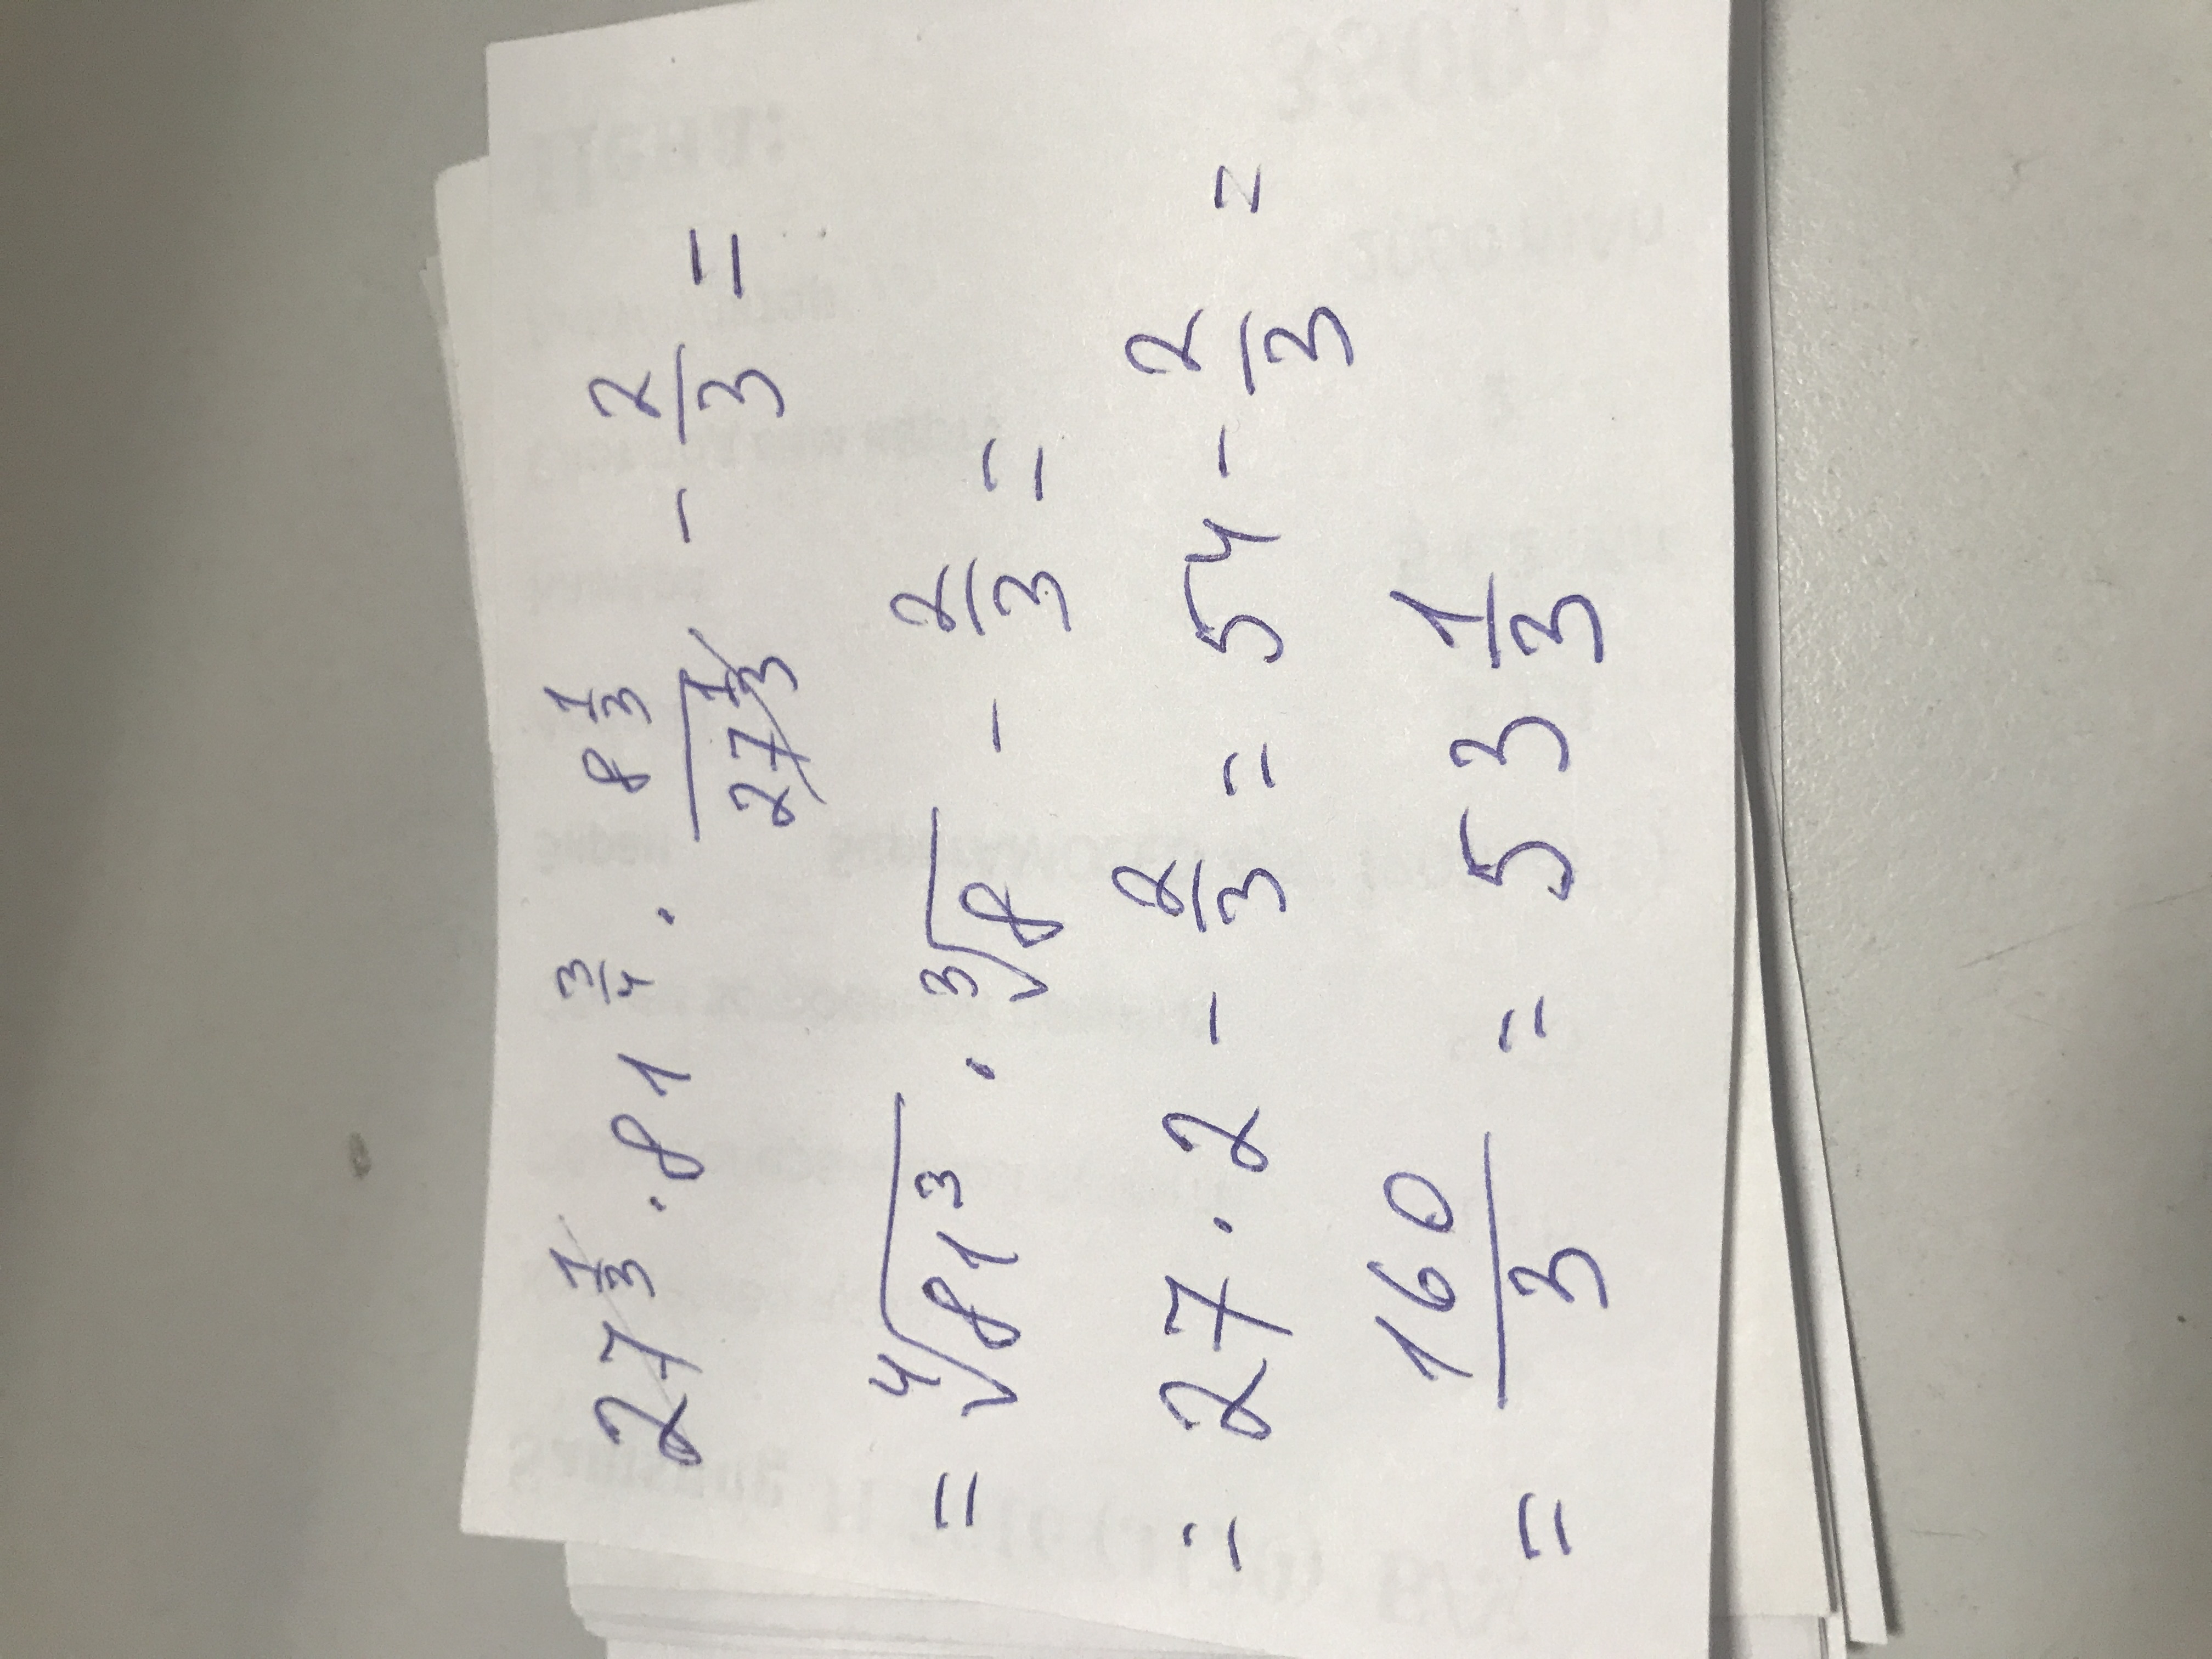 27^(1/3) · 81^(3/4) · 8^(1/3)/27^(1/3) - 2/3 =
= ⁴√81³ · ³√8 - 2/3 =
= 27 · 2 - 2/3 = 54 - 2/3 =
= 160/3 = 53 1/3